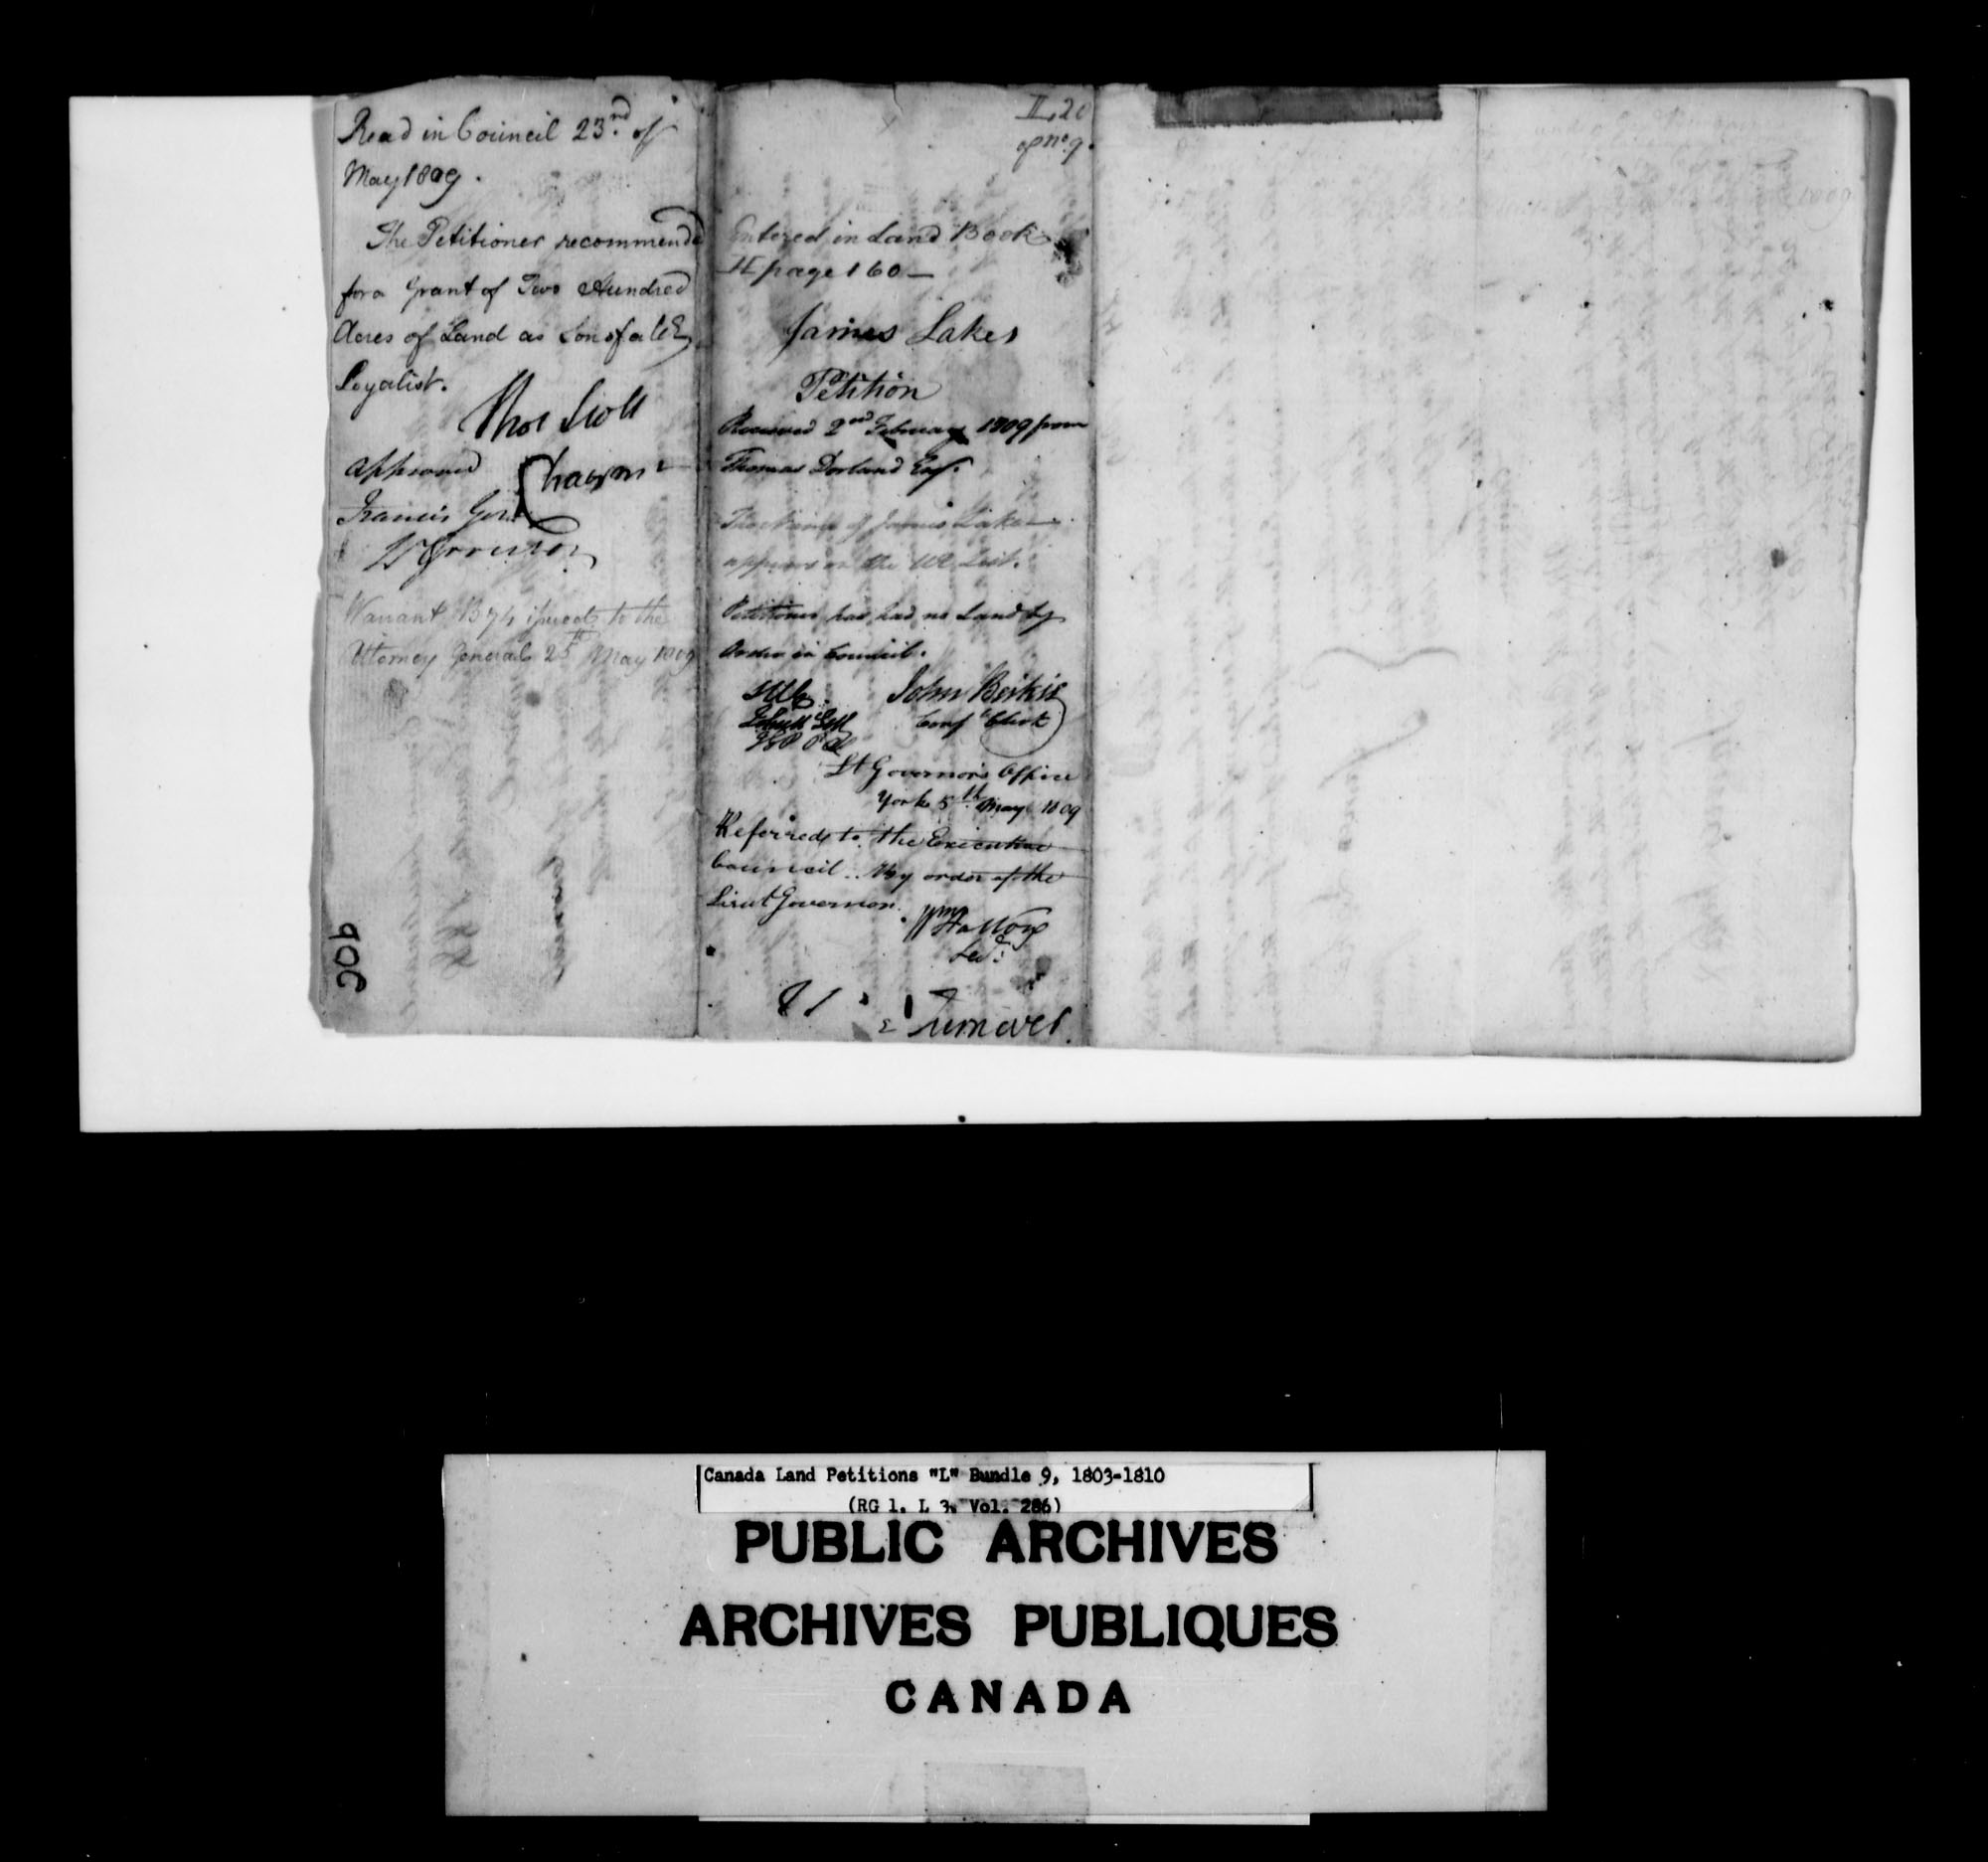 Read in Council 23.rd of
May 1809.
The Petitioner recommended
for a Grant of Two Hundred
Acres of Land as Son of a UE
Loyalist.
Thos Scott
Chairmn
approved
Francis Gore
Lt Governor
Warrant issued to the
Attorney General 25th May 1809
906
L 20
of no. 9.
Entered in Land Book
H page 160 —
James Lakes
Petition
Received 2nd February 1809 from
Thomas Dorland Esq.
The Name of James Lake
appears on the UE List.
Petitioner has had no Land by
Order in Council.
John Beikie
Conf l Clerk
Lt Governors Office
York 5th May 1809
Referred to the Executive
Council. By order of the
Lieut Governor.
Wm Halton
Secy
Turn over
Canada Land Petitions "L" Bundle 9, 1803-1810
(RG 1, L 3, Vol. 286)
PUBLIC ARCHIVES
ARCHIVES PUBLIQUES
CANADA